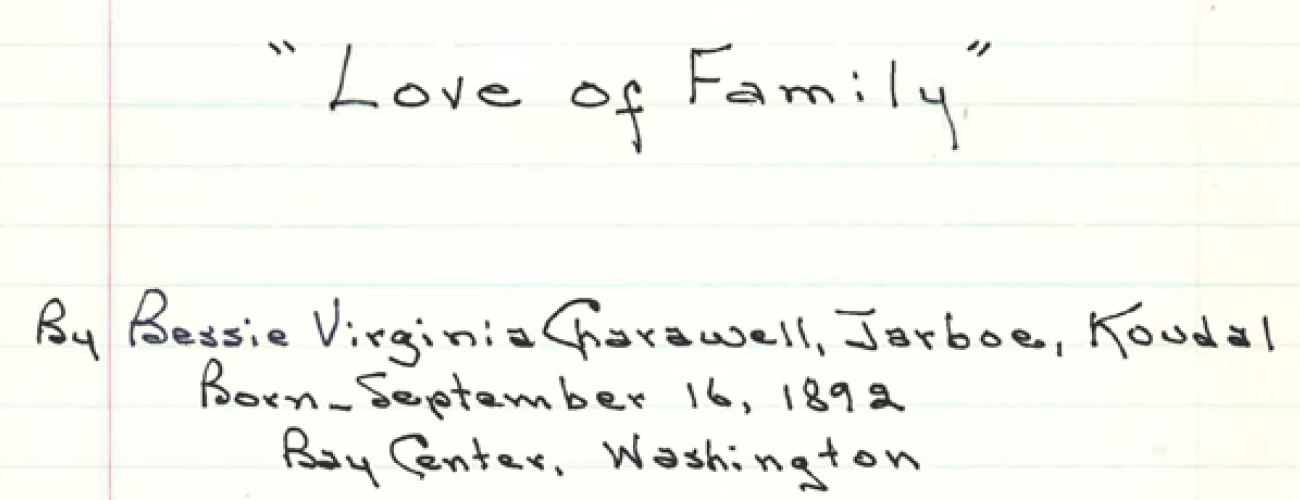 "Love of Family"
By Bessie Virginia Charawell, Jarboe, Koudal
Born - September 16, 1892
Bay Center, Washington